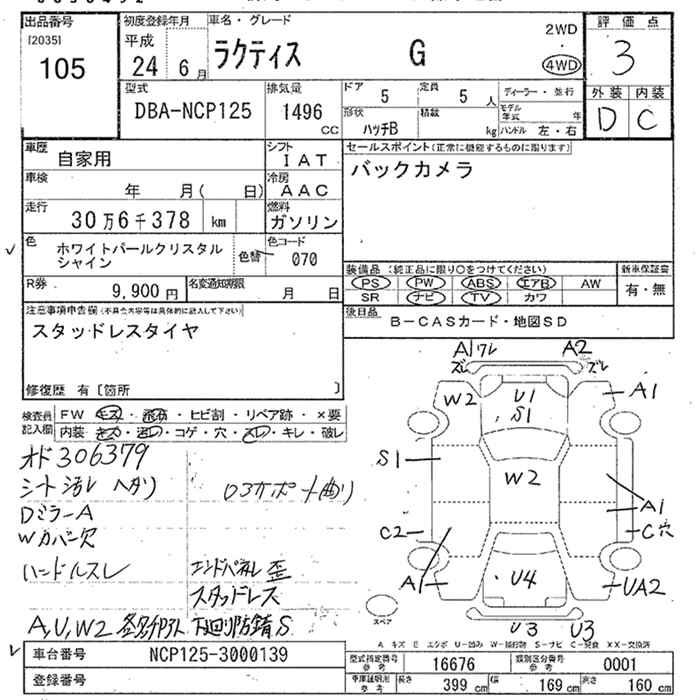 出品番号 初度登録年月 車名・グレード 2WD 評価点
[2035] 平成 ラクティス G 4WD 3
105 24 6月
型式 排気量 ドア 5 定員 5人 ディーラー・並行 外装 内装
DBA-NCP125 1496cc 形状 ハッチB 積載 kg モデル年式 年 D C
ハンドル 左・右
車歴 自家用 シフト IAT セールスポイント(正常に機能するものに限ります)
車検 年 月( 日) 冷房 AAC バックカメラ
走行 30万6千378 km 燃料 ガソリン
色 ホワイトパールクリスタル 色替 色コード 070
シャイン
装備品(純正品に限り○をつけてください) 新車保証書
R券 9,900円 名変通知期限 月 日 PS PW ABS エアB AW 有・無
SR ナビ TV カワ
注意事項申告欄(不具合内容等は具体的に記入して下さい) 後日品 B-CASカード・地図SD
スタッドレスタイヤ
修復歴 有[箇所 ]
検査員 FW キズ・飛石・ヒビ割・リペア跡・×要
記入欄 内装 キズ・汚レ・コゲ・穴・スレ・キレ・破レ
A1 ワレ A2
ズレ ズレ
W2 U1 A1
S1
S1 W2
A1
C2 C穴
A1 U4 UA2
U3 U3
スペア
オド306379
シート汚レ ヘタリ
DミラーA
Wカバー欠
ハンドルスレ エンドパネル歪
スタッドレス
A,U,W2 下廻り防錆S
A キズ E エクボ U 凹み W S サビ C 腐食 XX 交換済
車台番号 NCP125-3000139 型式指定番号 参考 16676 類別区分番号 参考 0001
登録番号 参考 長さ 399cm 幅 169cm 高さ 160cm